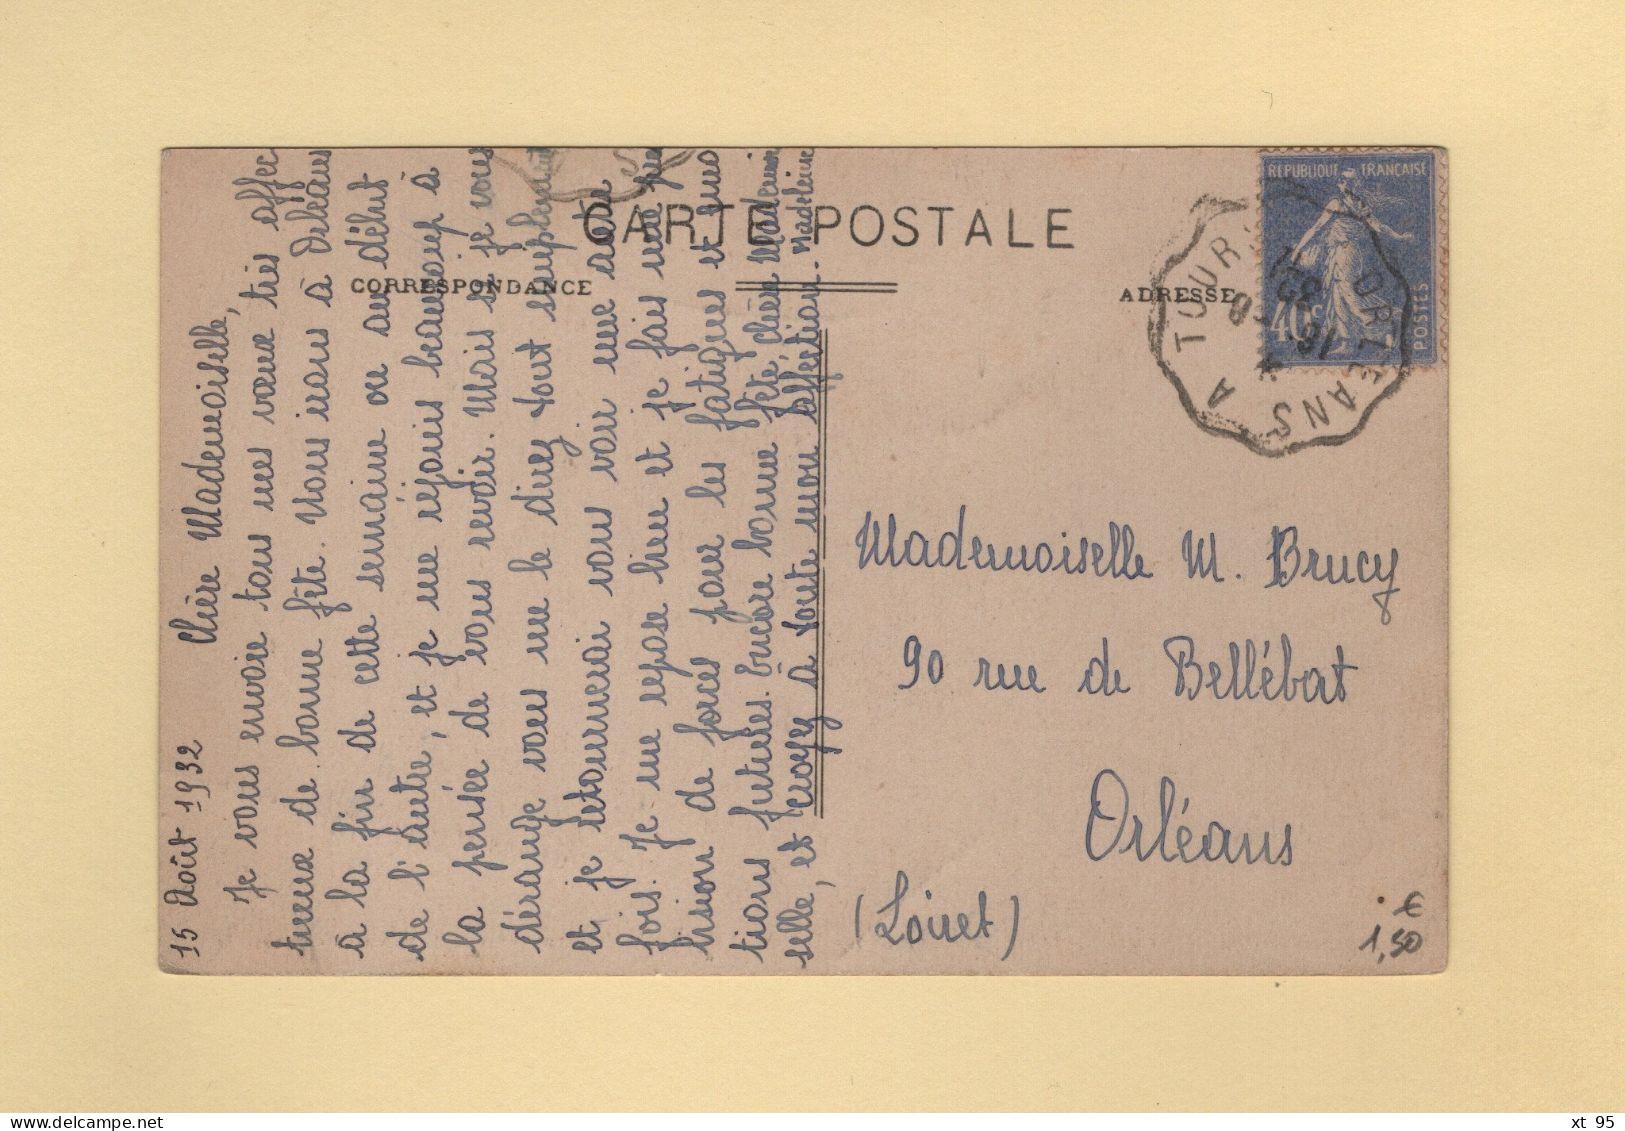 CARTE POSTALE
CORRESPONDANCE
ADRESSE
REPUBLIQUE FRANÇAISE
40c
POSTES
ORLEANS A TOURS
15 Août 1932
Chère Mademoiselle,
Je vous envoie tous mes vœux très affec
tueux de bonne fête. Nous irons à Orléans
à la fin de cette semaine ou au début
de l'autre, et je me réjouis beaucoup à
la pensée de vous revoir. Mais si je vous
dérange vous me le direz tout simplement
et je retournerai vous voir une autre
fois. Je me repose bien et je fais une pro
vision de forces pour les fatigues et émo
tions futures. Encore bonne fête, chère Mademoi
selle, et croyez à toute mon affection. Madeleine
Mademoiselle M. Brucy
90 rue de Bellébat
Orléans
(Loiret)
€
1,50
xt 95
delcampe.net